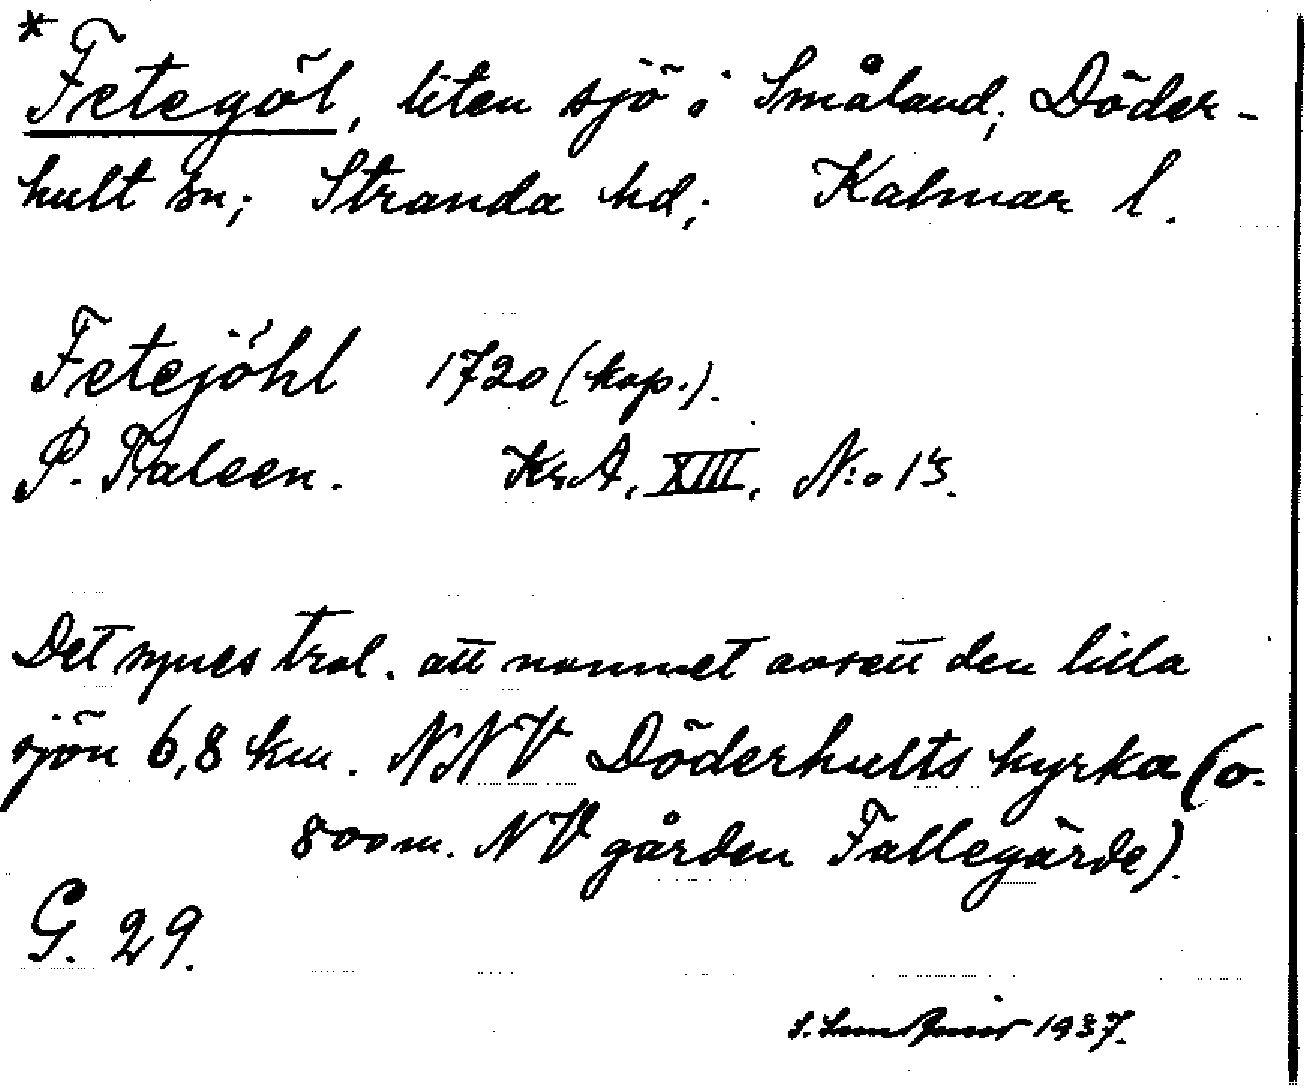 *Fetegöl, liten sjö i Småland; Döder-
hult sn; Stranda hd; Kalmar l.
Fetejöhl 1720 (kop.).
P. Kaleen. Kr.A, XIII, N:o 13.
Det synes trol. att namnet avsett den lilla
sjön 6,8 km. NNV Döderhults kyrka (o.
800 m. NV gården Fallegärde).
G. 29.
1937.